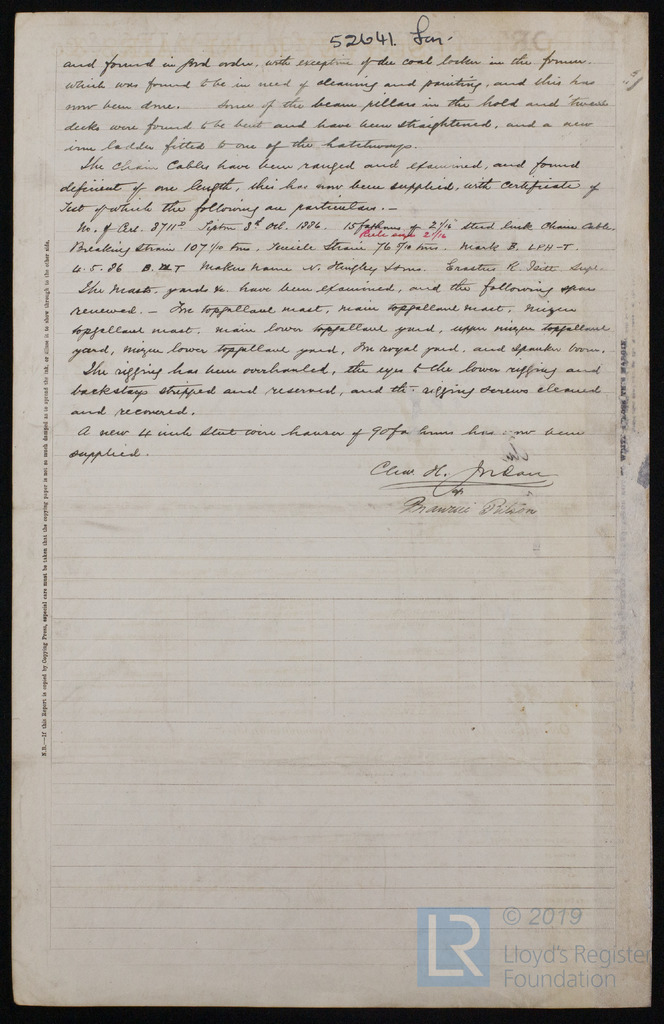 52641. Lon.
and found in good order, with exception of the coal locker in the former
which was found to be in need of cleaning and painting, and this has
now been done. — Some of the beam pillars in the hold and 'tween
decks were found to be bent and have been straightened, and a new
iron ladder fitted to one of the hatchways.
The Chain Cables have been ranged and examined, and found
deficient of one length, this has now been supplied, with certificate of
Test of which the following are particulars. —
No. of Cer. 3711 Tipton 3d Oct. 1886. 15 fathoms of 2 1/16 stud link Chain Cable.
Rule 2 1/16
Breaking Strain 107 1/10 tons, Tensile Strain 76 5/10 tons. Mark B. LPH-T.
4.5.86 Makers name N. Hingley & Sons. Supt.
The Masts, yards &c. have been examined, and the following spars
renewed. — Fore topgallant mast, main topgallant mast, mizen
topgallant mast, main lower topgallant yard, upper mizen topgallant
yard, mizen lower topgallant yard, fore royal yard, and spanker boom.
The rigging has been overhauled, the eyes to the lower rigging and
backstays stripped and reserved, and the rigging screws cleaned
and recovered.
A new 4 inch steel wire hawser of 90 fathoms has now been
supplied.
Chas. H. Jordan
N.B.—If this Report is copied by Copying Press, especial care must be taken that the copying paper is not so much damped as to spread the ink, or allow it to show through to the other side.
© 2019
LR
Lloyd's Register
Foundation